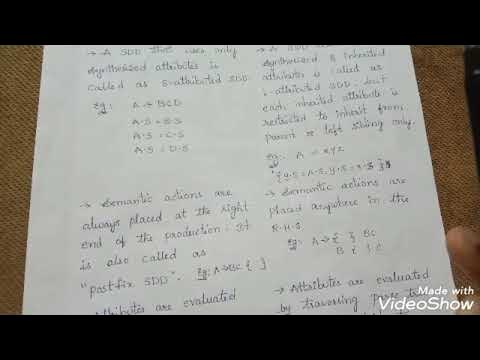 → A SDD that uses only
synthesized attributes is
called as S-attributed SDD.
Eg: A → BCD
A.S = B.S
A.S = C.S
A.S = D.S
→ Semantic actions are
always placed at the right
end of the production. It
is also called as
"postfix SDD". Eg: A→BC{ }
Attributes are evaluated
→ A SDD
synthesized & inherited
attributes is called as
L-attributed SDD, but
each inherited attribute is
restricted to inherit from
parent or left sibling only.
Eg: A → XYZ
{Y.S = A.S, Y.S = X.S}
→ Semantic actions are
placed anywhere in the
R.H.S
Eg: A→{ } BC
B { } C
→ Attributes are evaluated
by traversing
Made with
VideoShow